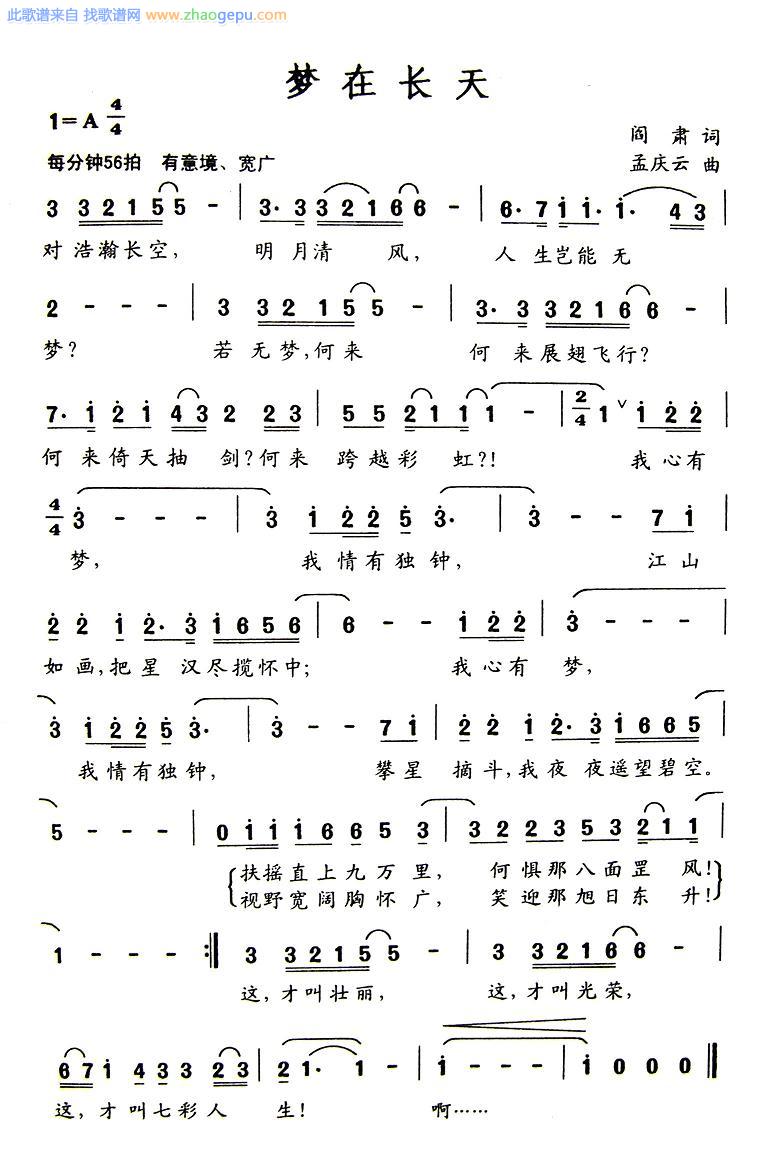 此歌谱来自 找歌谱网 www.zhaogepu.com
梦在长天
1=A 4/4
阎 肃 词
每分钟56拍 有意境、宽广
孟庆云 曲
3 3 2 1 5 5 - | 3· 3 3 2 1 6 6 - | 6· 7 1 1· 1· 4 3 |
对浩瀚长空, 明月清 风, 人生岂能无
2 - - - | 3 3 2 1 5 5 - | 3· 3 3 2 1 6 6 - |
梦? 若无梦,何来 何来展翅飞行?
7· 1 2 1 4 3 2 2 3 | 5 5 2 1 1 1 - | 2/4 1 ∨ 1 2 2 |
何来倚天抽 剑?何来 跨越彩 虹?! 我心有
4/4 3 - - - | 3 1 2 2 5 3· | 3 - - 7 1 |
梦, 我情有独钟, 江山
2 2 1 2· 3 1 6 5 6 | 6 - - 1 2 2 | 3 - - -
如画,把星 汉尽揽怀中; 我心有 梦,
3 1 2 2 5 3· | 3 - - 7 1 | 2 2 1 2· 3 1 6 6 5 |
我情有独钟, 攀星 摘斗,我夜 夜遥望碧空。
5 - - - | 0 1 1 1 6 6 5 3 | 3 2 2 3 5 3 2 1 1 |
扶摇直上九万里, 何惧那八面罡 风!
视野宽阔胸怀广, 笑迎那旭日东 升!
1 - - - :| 3 3 2 1 5 5 - | 3 3 2 1 6 6 - |
这,才叫壮丽, 这,才叫光荣,
6 7 1 4 3 3 2 3 | 2 1· 1 - | 1 - - - | 1 0 0 0 ||
这,才叫七彩人 生! 啊……